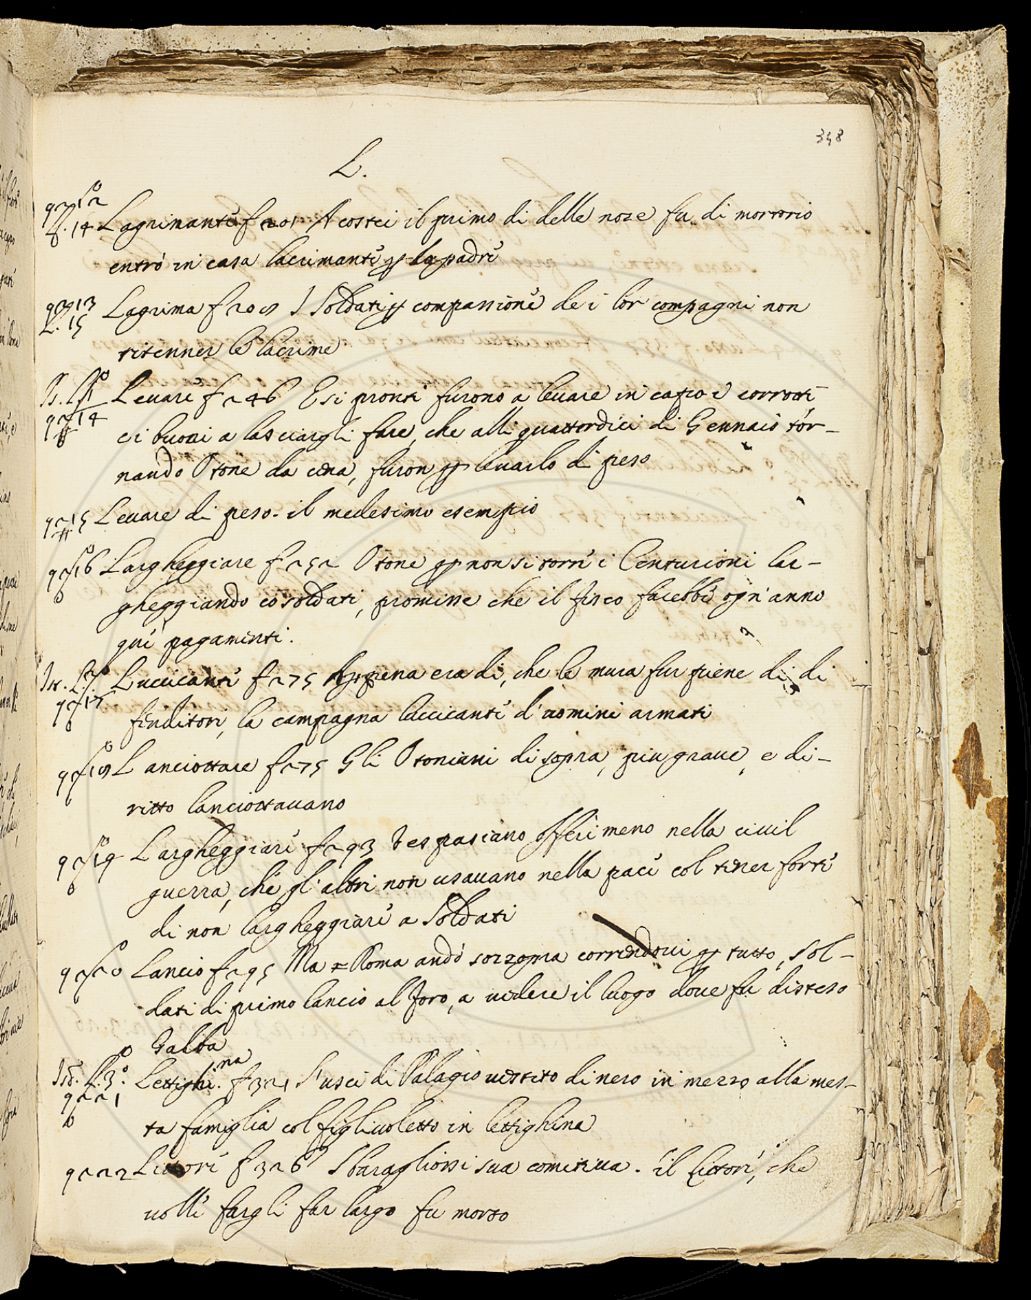 348
L.
L. 14 Lagrimante f 201 A costei il primo di delle noze fu di mortorio
entrò in casa lacrimante ꝑ la padre
L. 15 Lagrima f 208 I Soldati ꝑ compassione de i lor compagni non
ritenner le lacrime
14 Levare f 246 E sì pronti furono a levare in capo i corrotti
e i buoni a lasciargli fare, che alli quattordici di Gennaio tor-
nando Otone da cena, furon ꝑ levarlo di peso
15 Levare di peso. il medesimo esempio
16 Largheggiare f 252 Otone ꝑ non si torre i Centurioni lar-
gheggiando co soldati, promisse che il fisco farebbe ogn'anno
que pagamenti.
17 Luccicante f 275 Appena era dì, che le mura fur piene di di
fenditori, la campagna luccicante d'uomini armati
18 Lanciottare f 275 Gli Otoniani di sopra, più grave, e di-
ritto lanciottavano
19 Largheggiare f 293 Vespasiano offerì meno nella civil
guerra, che gl'altri non usavano nella pace col tener forte
di non largheggiare a Soldati
20 Lancio f 295 Ma Roma andò sozzopra correndovi ꝑ tutto, Sol-
dati di primo lancio al foro, a vedere il luogo dove fu disteso
Galba
21 Lettighina f 321 S'uscì di Palagio vestito di nero in mezzo alla mes-
ta famiglia col figlivoletto in lettighina
22 Littore f 326 Sbaragliossi sua comitiva. il littore, che
volle fargli far largo fu morto